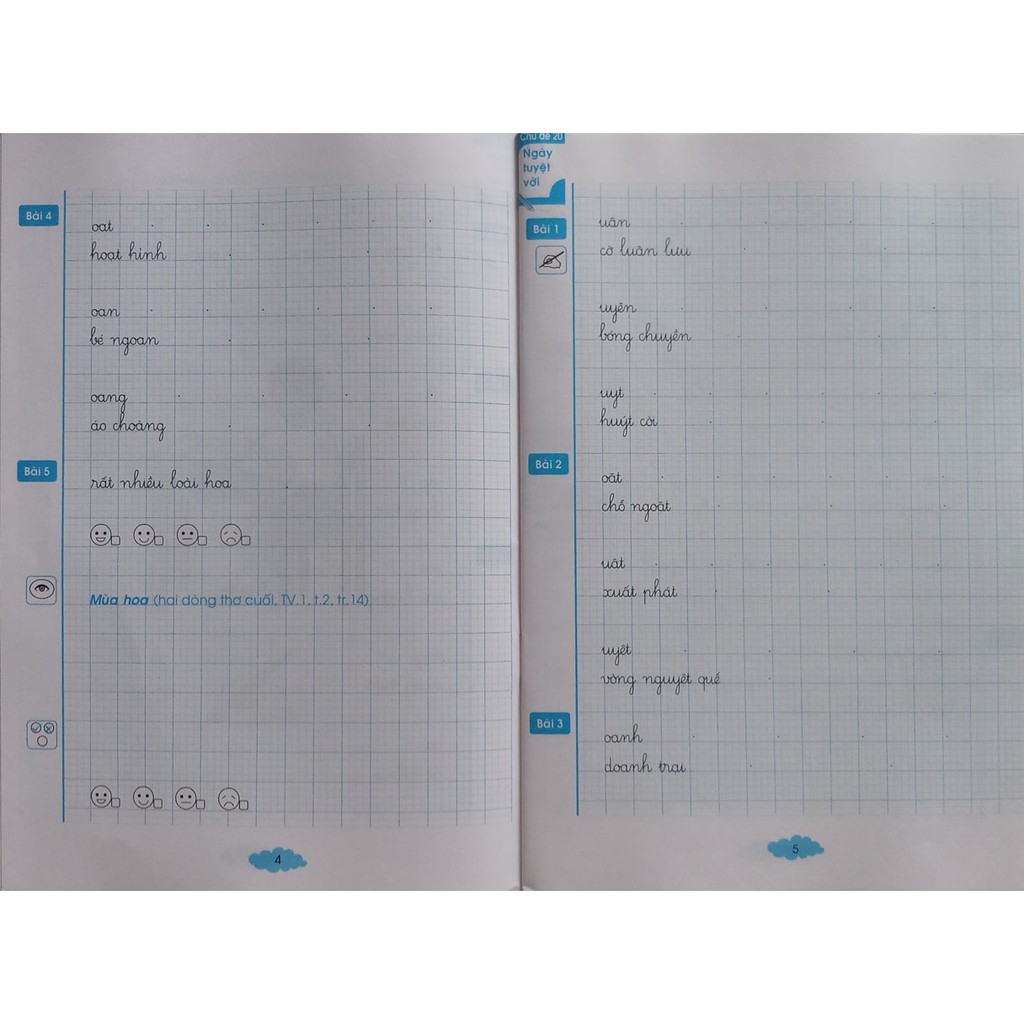 Bài 4
oat
hoạt hình
oan
bé ngoan
oang
áo choàng
Bài 5
rất nhiều loài hoa
Mùa hoa (hai dòng thơ cuối, TV.1, t.2, tr.14)
4
Chủ đề 20
Ngày
tuyệt
vời
Bài 1
uân
cờ luân lưu
uyên
bóng chuyền
uyt
huýt còi
Bài 2
oăt
chỗ ngoặt
uât
xuất phát
uyêt
vòng nguyệt quế
Bài 3
oanh
doanh trại
5